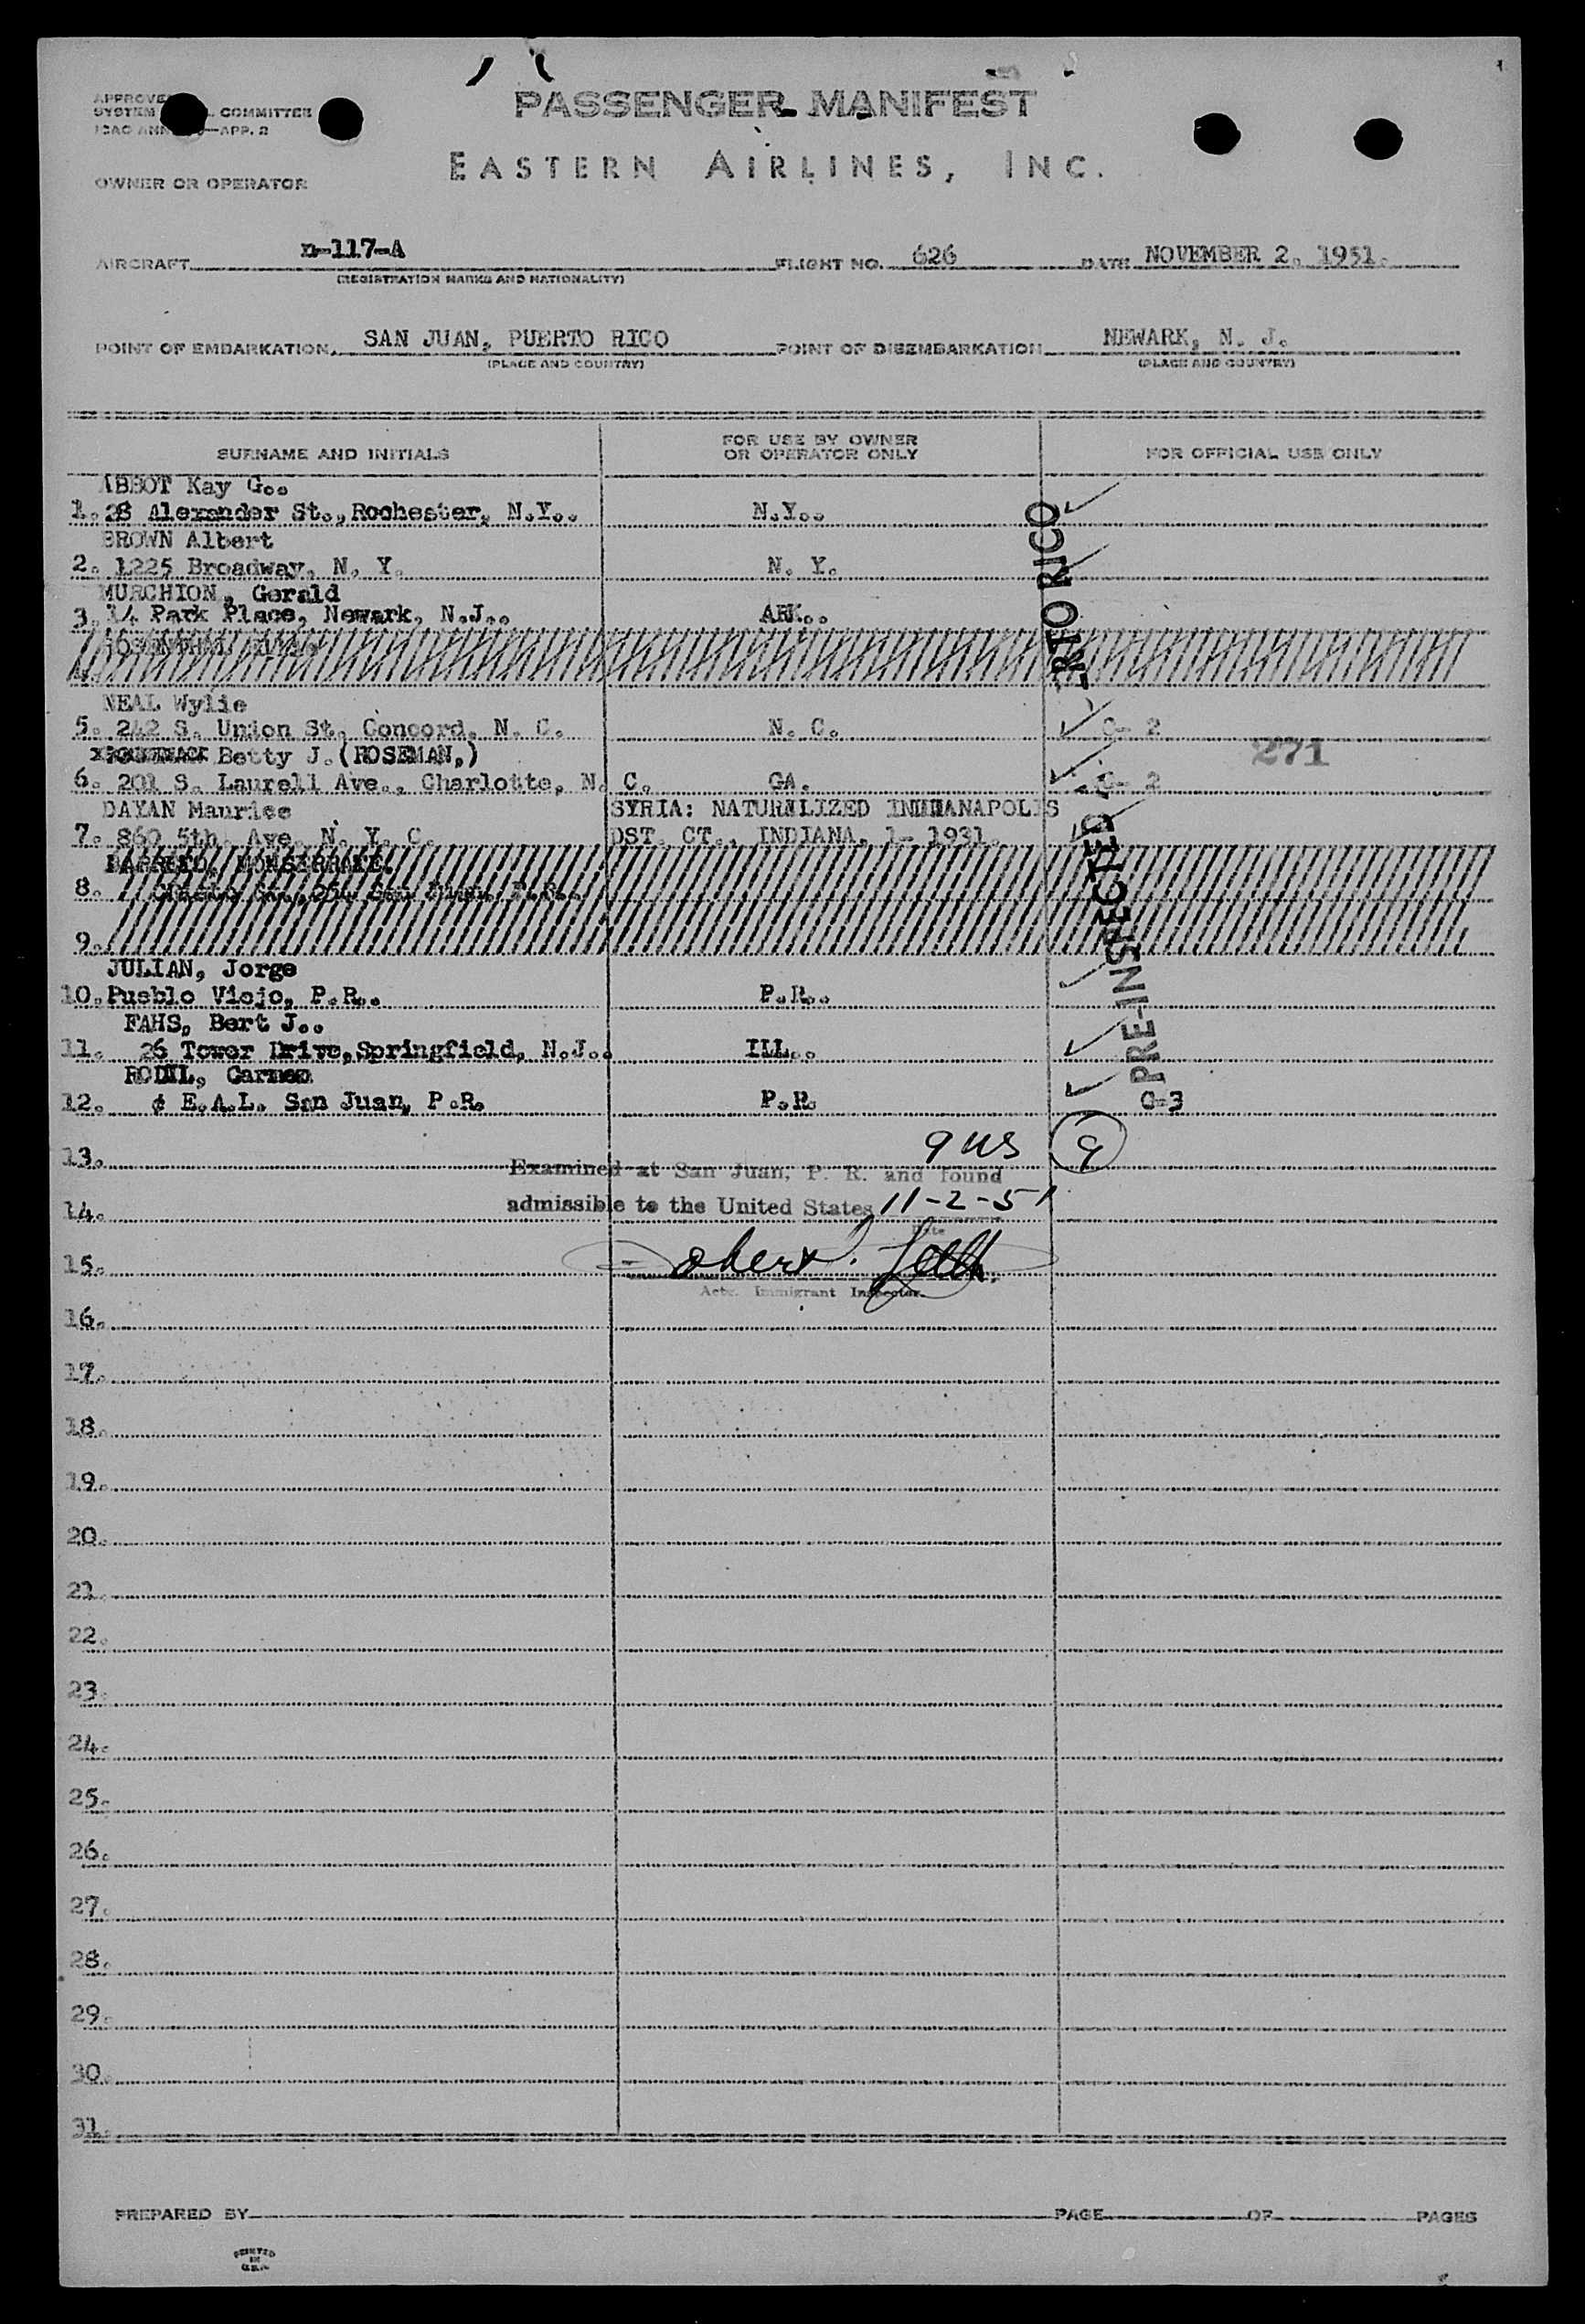 PASSENGER MANIFEST
COMMITTEE
APP. 2
EASTERN AIRLINES, INC.
OWNER OR OPERATOR
AIRCRAFT n-117-A FLIGHT NO. 626 DATE NOVEMBER 2. 1951.
(REGISTRATION MARKS AND NATIONALITY)
POINT OF EMBARKATION. SAN JUAN, PUERTO RICO POINT OF DISEMBARKATION NEWARK, N. J.
(PLACE AND COUNTRY) (PLACE AND COUNTRY)
SURNAME AND INITIALS FOR USE BY OWNER OR OPERATOR ONLY FOR OFFICIAL USE ONLY
ABBOT Kay G..
1. 28 Alexander St., Rochester, N.Y.. N.Y..
BROWN Albert
2. 1225 Broadway, N. Y. N. Y.
MURCHION, Gerald
3. 14 Park Place, Newark, N.J.. ARK..
4.
NEAL Wylie
5. 242 S. Union St. Concord, N. C. N. C. C- 2
Betty J. (ROSEMAN,) 271
6. 201 S. Laurell Ave., Charlotte, N. C. GA. C- 2
DAYAN Maurice SYRIA: NATURALIZED
7. 860 5th Ave, N. Y. C. DST. CT., INDIANA, 1- 1931.
8.
9.
JULIAN, Jorge
10. Pueblo Viejo, P.R.. P.R..
FAHS, Bert J..
11. 26 Tower Drive, Springfield, N.J.. ILL..
RODIL, Carmen
12. ¢ E.A.L. San Juan, P.R. P.R. C-3
PRE-INSPECTED
9 us 9
13.
Examined at San Juan, P. R. and found
14. admissible to the United States 11-2-51
Date
15.
Actg. Immigrant Inspector.
16.
17.
18.
19.
20.
21.
22.
23.
24.
25.
26.
27.
28.
29.
30.
31.
PREPARED BY PAGE OF PAGES
PRINTED
IN
U.S.A.